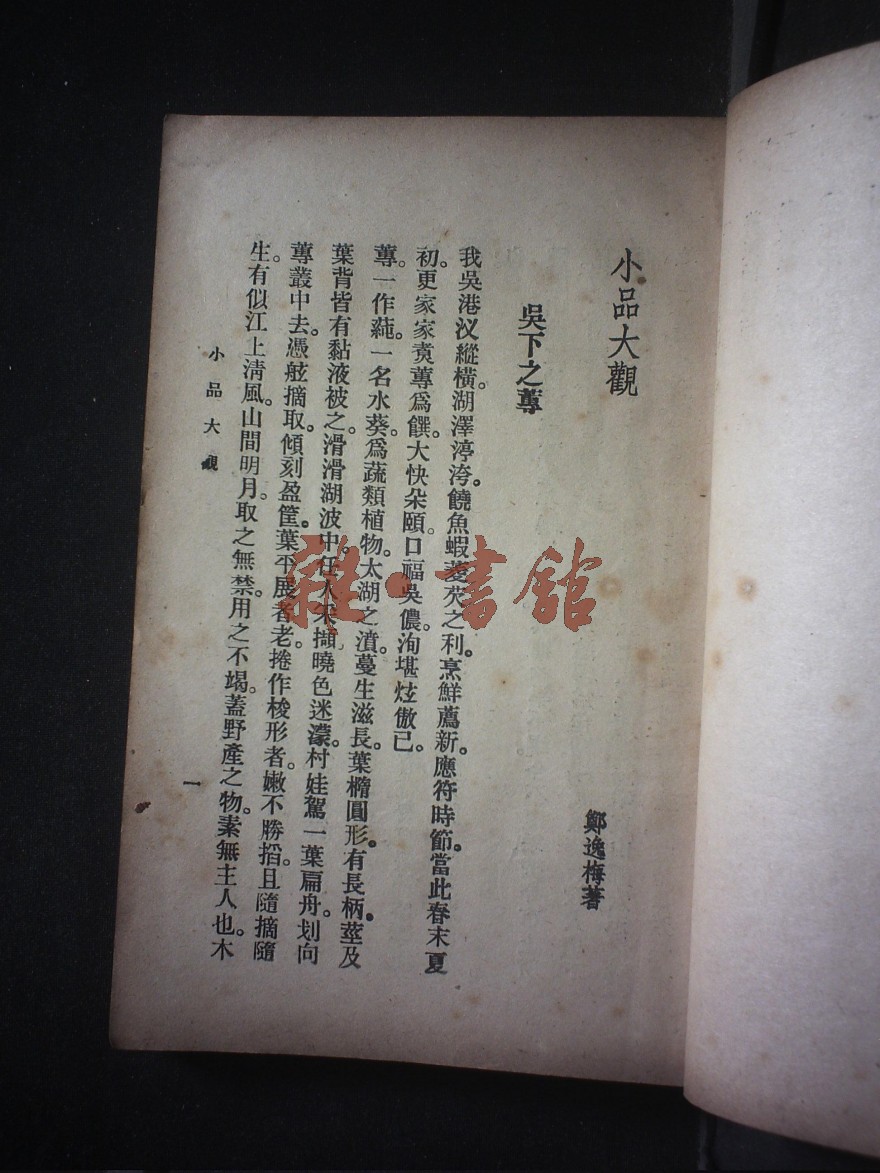 小品大觀
鄭逸梅著
吳下之蓴
我吳港汊縱橫。湖澤渟洿。饒魚蝦菱芡之利。烹鮮薦新。應符時節。當此春末夏
初。更家家煑蓴爲饌。大快朵頤。口福吳儂。洵堪炫傲已。
蓴。一作蒓。一名水葵。爲蔬類植物。太湖之濆。蔓生滋長。葉橢圓形。有長柄。莖及
葉背皆有黏液被之。滑滑湖波中。任人采擷。曉色迷濛。村娃駕一葉扁舟。划向
蓴叢中去。憑舷摘取。傾刻盈筐。葉平展者老。捲作梭形者。嫩不勝搯。且隨摘隨
生。有似江上清風。山間明月。取之無禁。用之不竭。蓋野產之物。素無主人也。木
小品大觀
一
雜·書館